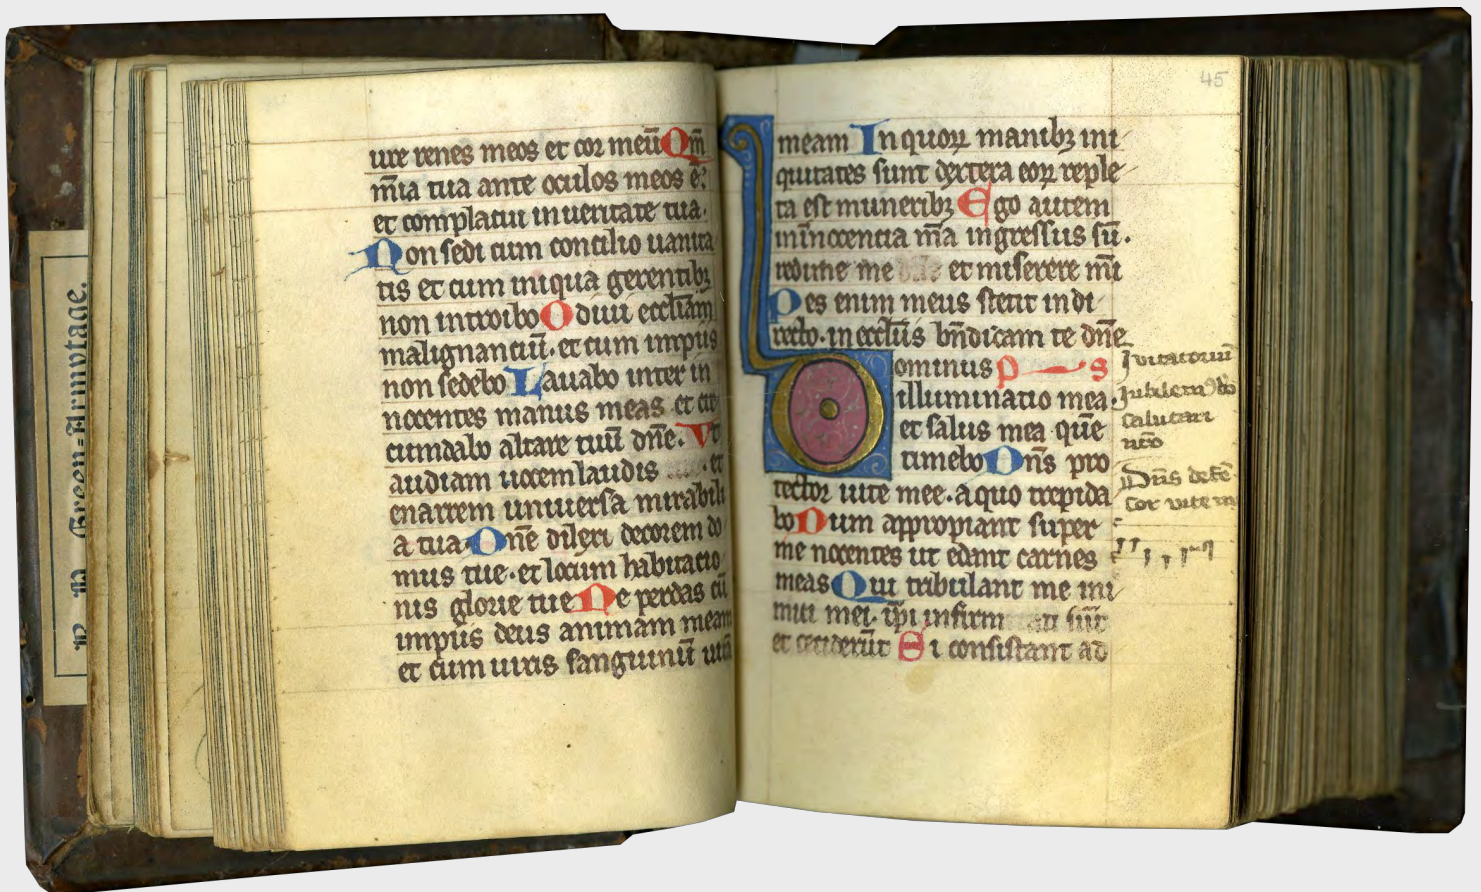 ure renes meos et cor meū Qm̄
m̄ia tua ante oculos meos ē:
et complacui in ueritate tua.
Non sedi cum concilio uanita
tis et cum iniqua gerentibꝫ
non introibo Odiui eccl̄iam
malignanciū. et cum impiis
non sedebo Lauabo inter in
nocentes manus meas et cir
cumdabo altare tuū dn̄e. Vt
audiam uocem laudis . et
enarrem uniuersa mirabili
a tua Dn̄e dilexi decorem do
mus tue. et locum habitatio
nis glorie tue Ne perdas cū
impiis deus animam meam
et cum uiris sanguinū uitā
45
meam In quoꝝ manibꝫ ini
quitates sunt dextera eoꝝ reple
ta est muneribꝫ Ego autem
in innocencia m̄a ingressus sū.
redime me et miserere m̄i
Pes enim meus stetit in di
recto. in eccl̄iis bn̄dicam te dn̄e
Dominus p s
illuminatio mea.
et salus mea quē
timebo Dn̄s pro
tector uite mee. a quo trepida
bo Dum appropiant super
me nocentes ut edant carnes
meas Qui tribulant me ini
mici mei. ip̄i infirm ati sūt
et ceciderūt Si consistant ad
Iuitatoriū
Iubilem9 deo
salutari
nr̄o
Dn̄s defē
sor uite m
P. P. Green-Armytage.